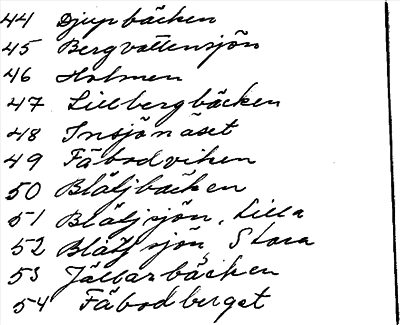 44 Djupbäcken
45 Bergvattensjön
46 Holmen
47 Lillbergbäcken
48 Insjönäset
49 Fäbodviken
50 Blåljbäcken
51 Blåljsjön, Lilla
52 Blåljsjön, Stora
53 Jällarbäcken
54 Fäbodberget